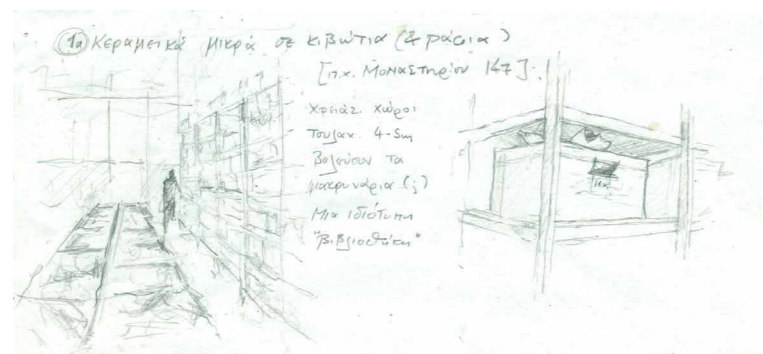 1α Κεραμεικά μικρά σε κιβώτια (& ράφια)
[π.χ. Μοναστηρίου 147].
Χρειάζ. χώροι
Τουλαχ. 4-5m
Βολεύουν τα
μακρυνάρια (;)
Μια ιδιότυπη
"βιβλιοθήκη"